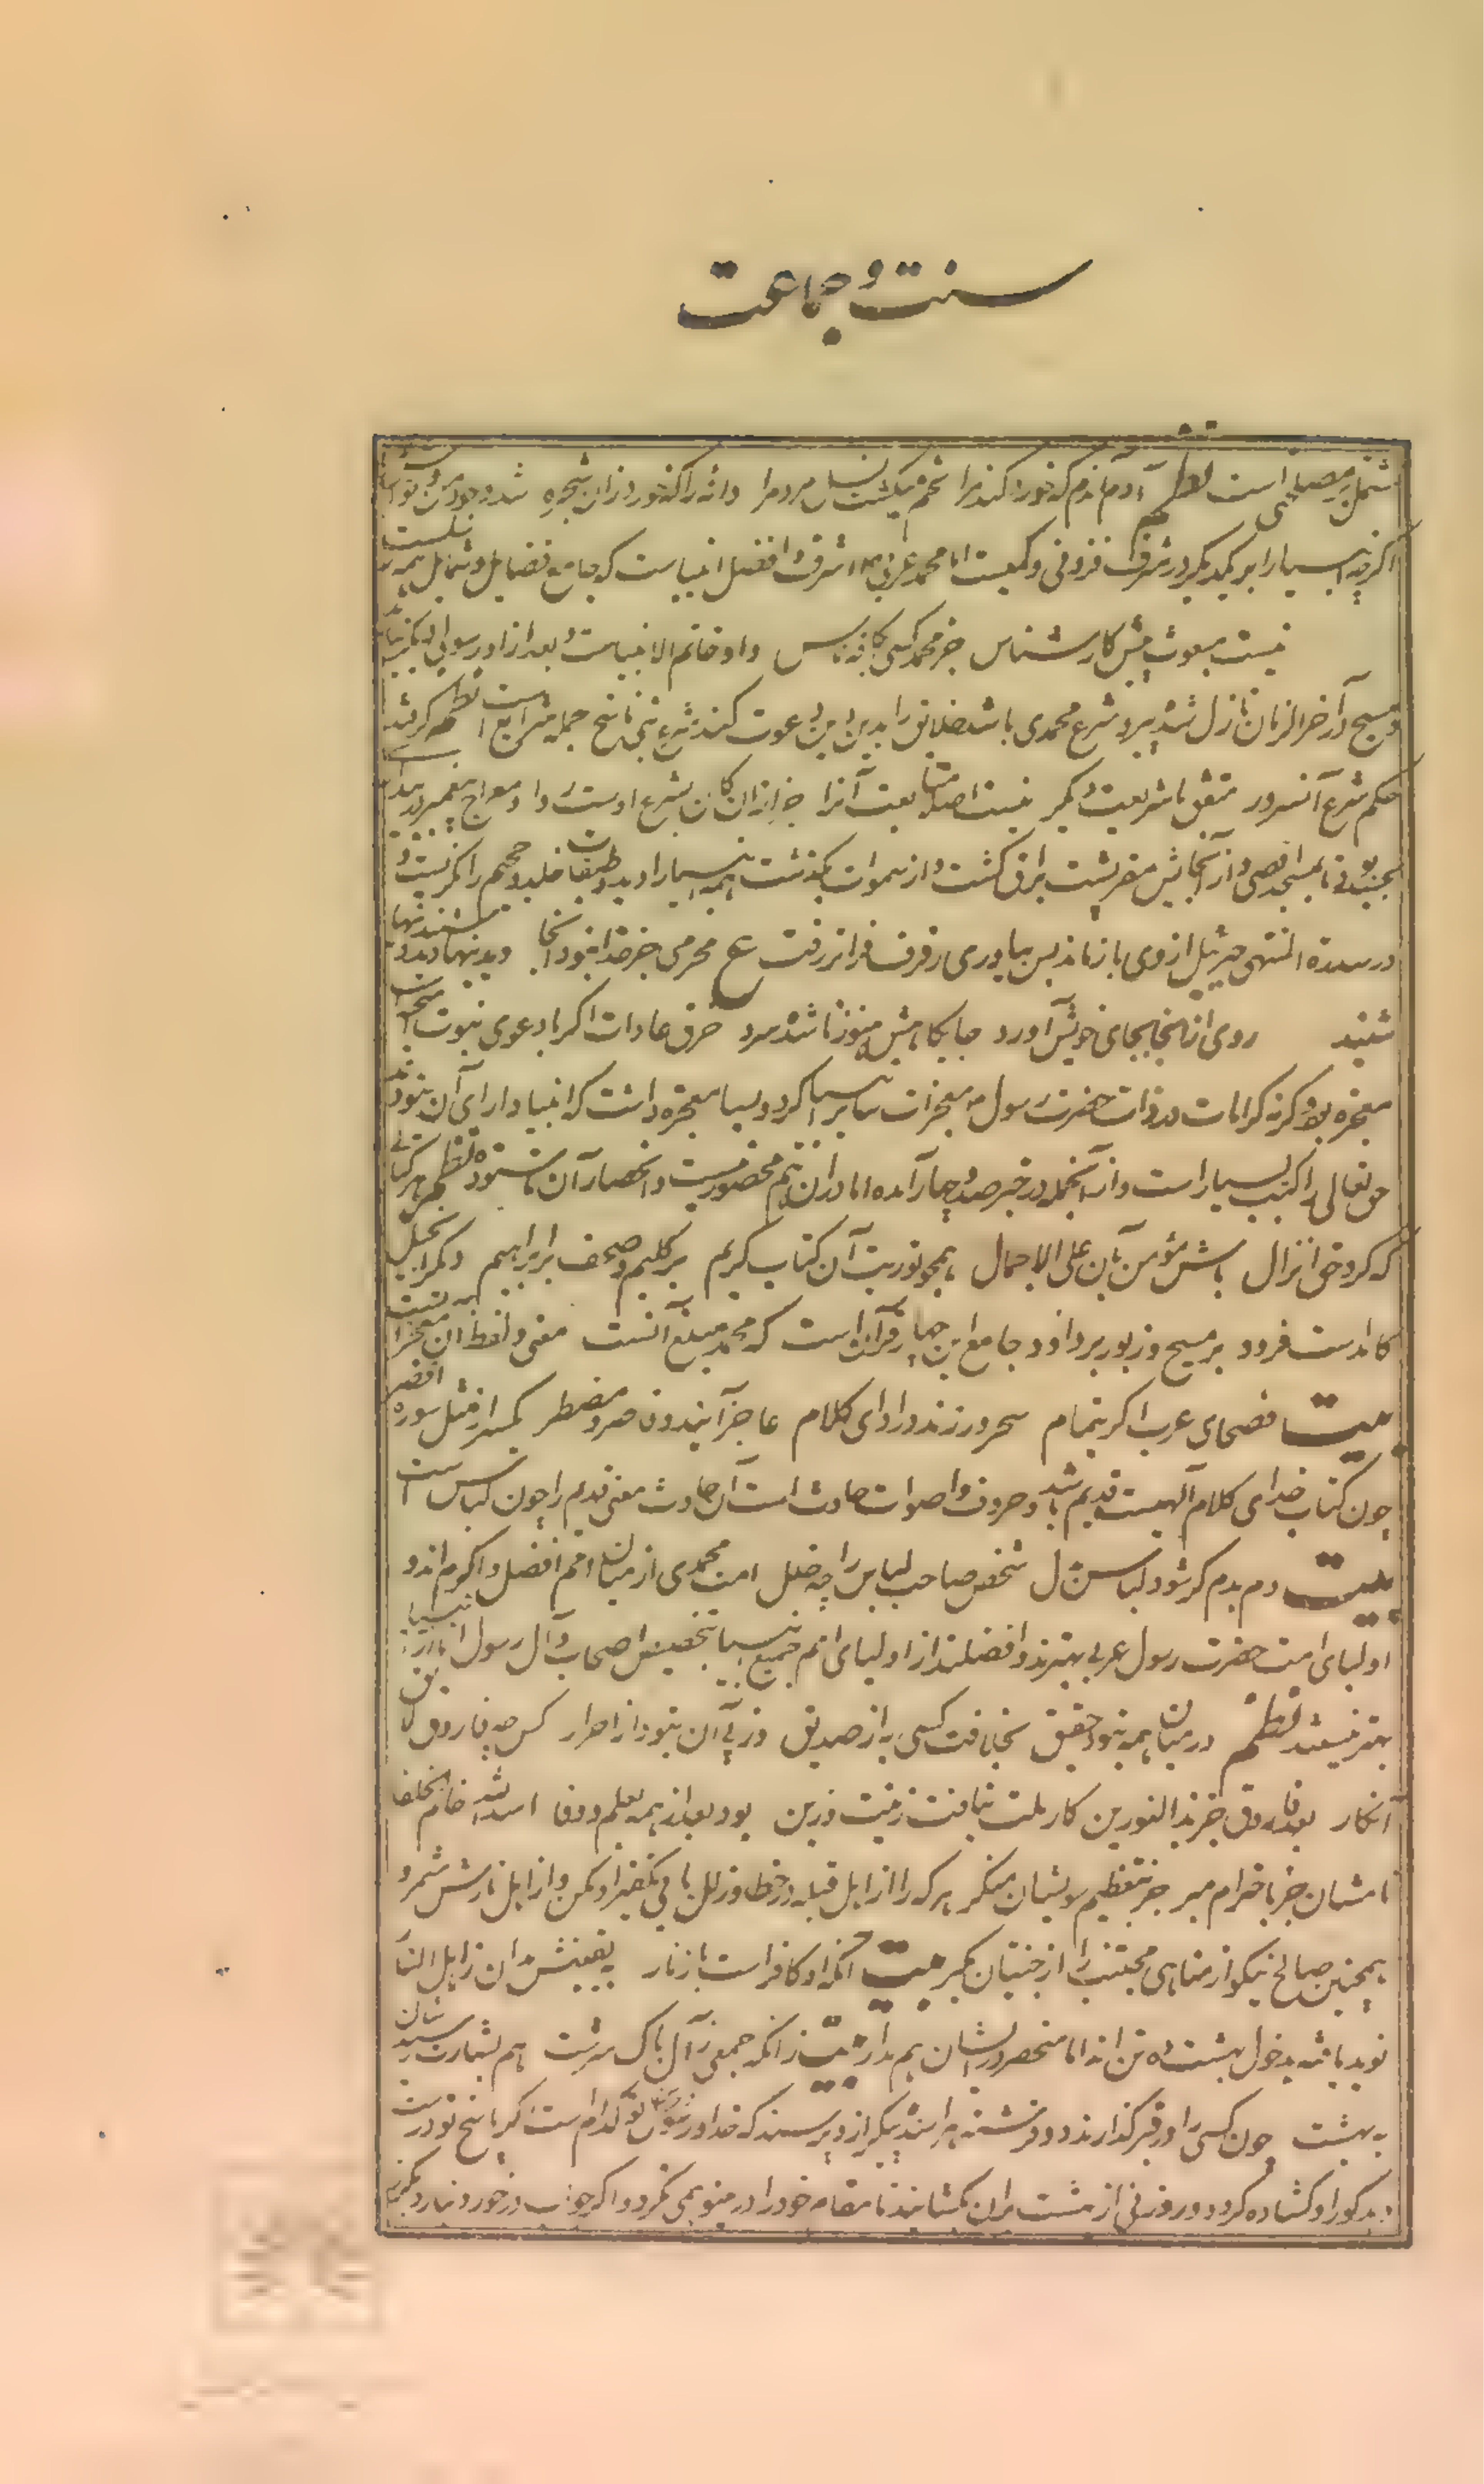 سنت و جماعت
مشتمل بر مصلحتی است نظم آدم آندم که خورد گندم را تخم میکشت نسل مردم را دانه را که خورد زان شجره شد وجود من و تو آن
اگرچه انبیا را بر یکدیگر در شرف فزونی و کمیست اما محمد عربی اشرف و افضل انبیاست که جامع فضایل و شمایل همه
نیست مبعوث پیش کار شناس جز محمد کسی بکافه ناس و او خاتم الانبیاست و بعد از او رسولی دیگر
و مسیح در آخر الزمان نازل شد پیرو شرع محمدی باشد خلایق را بدین دین دعوت کند شرع نبی ناسخ جمله شرایع است نظم گر بشد
حکم شرع آن سرور متفق با شریعت دیگر نیست اصلا متابعت آنرا جز ازان کان بشرع اوست روا و معراج پیغمبر
بمسجد اقصی و از آنجایش مقر پشت براق گشت و از سموات بگذشت همه انبیا را دید و طبقات خلد و جحیم را نگریست و
در سدره المنتهی جبرئیل از وی باز ماند پس بیاوری رفرف فراتر رفت ع محرمی جز خدا نبود آنجا دیدنیها دید و شنیدنیها
شنید روی از انجا بجای خویش آورد جایگاهش هنوز نا شده سرد خرق عادات اگر با دعوی نبوت است
معجزه بود وگرنه کرامات و ذات حضرت رسول معجزات سایر انبیا گرد و بسا معجزه داشت که انبیا دارای آن نبودند
حق تعالی را کتب بسیار است و از آنجمله در خبر صد و چهار آمده اما در ان هم محصور نیست و انحصار آن ناستوده نظم هر کتابی
که کرد حق انزال باش مؤمن بآن علی الاجمال همچو توریت آن کتاب کریم بر کلیم و صحف بر ابراهیم دگر انجیل
کامدست فرود بر مسیح و زبور بر داود جامع این چهار قرآنست که محمد مبلغ آنست معنی و لفظ آن معجز
بیت فصحای عرب اگر بتمام سحر ورزند در ادای کلام عاجز آیند و مضطر کمتر از مثل سوره اقصر
چون کتاب خدای کلام الهیست قدیم باشد و حروف و اصوات حادث است آن حادث معنی قدیم را چون لباس است
بیت دم بدم گر شود لباس بدل شخص صاحب لباس را چه خلل امت محمدی از میان امم افضل و اکرم اند و
اولیای امت حضرت رسول عربی بهترند و افضلند از اولیای امم جمیع انبیا بتخصیص اصحاب و آل رسول اما از انبیا
بهتر نیستند نظم در میان همه نبود حقیق بخلافت کسی به از صدیق وز پی آن نبود از احرار کس چو فاروق لایق
آنکار بعد فاروق جز بذی النورین کار ملت نیافت زینت و زین بود بعد از همه بعلم و وفا اسدالله خاتم الخلفا
نامشان جز باحترام مبر جز بتعظیم سویشان منگر هر که را از اهل قبله در خطا و زلل یابی تکفیر او مکن و از اهل نارش مشمر و
همچنین صالح نیکو از مناهی مجتنب را از جنتیان مگیر بیت آنکه او کافر است باز نار به یقینش مدان ز اهل النار
نوید یافته بدخول بهشت ده تن اند اما منحصر در ایشان هم مدار بیت زانکه جمعی ز آل پاک سرشت هم بشارت رسیدشان
به بهشت چون کسی را در قبر گذارند دو فرشته هراسنده پیکر ازو پرسند که خدا و رسول تو کدام است گر پاسخ تو درست
دهد گور او گشاده گردد و روزنی از بهشت بران بگشایند تا مقام خود را در مینو همی نگرد و اگر جواب درخور نیارد بگرز